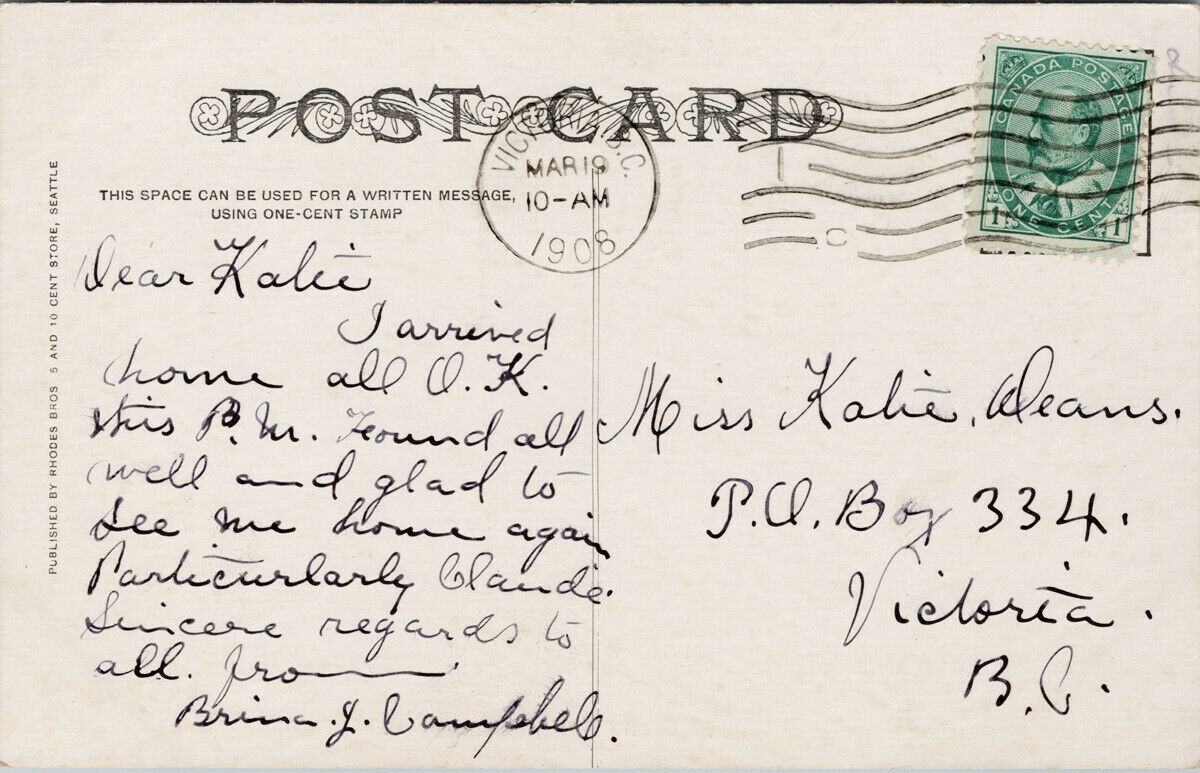 POST CARD
THIS SPACE CAN BE USED FOR A WRITTEN MESSAGE,
USING ONE-CENT STAMP
PUBLISHED BY RHODES BROS 5 AND 10 CENT STORE, SEATTLE
VICTORIA, B.C.
MAR 19
10-AM
1908
CANADA POSTAGE
1 ONE CENT 1
Dear Katie
I arrived
home all O.K.
this P.M. Found all
well and glad to
see me home again
Particurlarly Claude.
Sincere regards to
all. from
Brina. J. Campbell.
Miss Katie, Deans.
P.O. Box 334.
Victoria.
B.C.